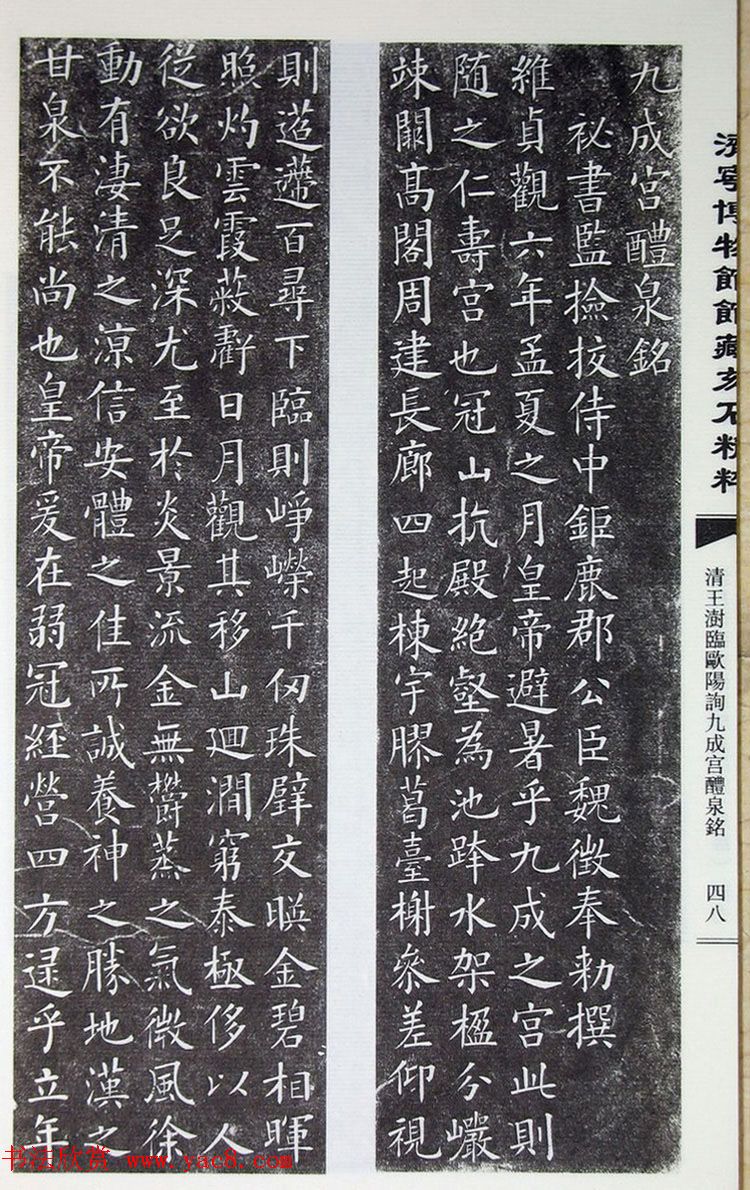 九成宮醴泉銘
祕書監撿挍侍中鉅鹿郡公臣魏徵奉勑撰
維貞觀六年孟夏之月皇帝避暑乎九成之宮此則
随之仁壽宮也冠山抗殿絕壑為池跨水架楹分巖
竦闕高閣周建長廊四起棟宇膠葛臺榭參差仰視
則迢遰百尋下臨則崢嶸千仞珠璧交暎金碧相暉
照灼雲霞蔽虧日月觀其移山迴澗窮泰極侈以人
從欲良足深尤至於炎景流金無鬱蒸之氣微風徐
動有淒清之凉信安體之佳所誠養神之勝地漢之
甘泉不能尚也皇帝爰在弱冠經營四方逮乎立年
濟寧博物館館藏玄石精粹
清王澍臨歐陽詢九成宮醴泉銘
四八
书法欣赏 www.yac8.com